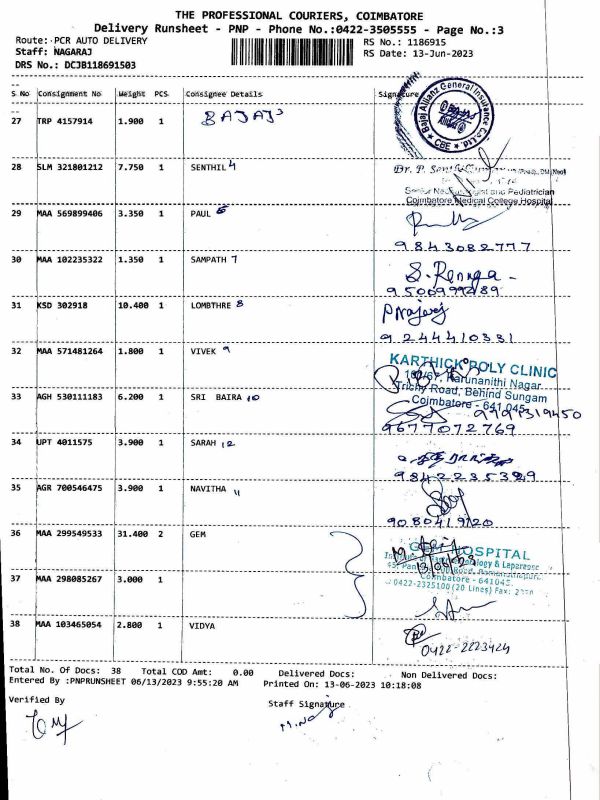 THE PROFESSIONAL COURIERS, COIMBATORE
Delivery Runsheet - PNP - Phone No.:0422-3505555 - Page No.:3
Route: PCR AUTO DELIVERY RS No.: 1186915
Staff: NAGARAJ RS Date: 13-Jun-2023
DRS No.: DCJB118691503
S No Consignment No Weight PCS Consignee Details Signature
27 TRP 4157914 1.900 1 BAJAJ
Bajaj Allianz General Insurance Co.Ltd. CBE
28 SLM 321801212 7.750 1 SENTHIL 4
Senior and Pediatrician
Coimbatore Medical College Hospital
29 MAA 569899406 3.350 1 PAUL
9843082777
30 MAA 102235322 1.350 1 SAMPATH 7
31 KSD 302918 10.400 1 LOMBTHRE 8
9244410331
32 MAA 571481264 1.800 1 VIVEK 9
KARTHICK POLY CLINIC
Karunanithi Nagar
Trichy Road, Behind Sungam
Coimbatore - 641 045
33 AGH 530111183 6.200 1 SRI BAIRA 10
9677072769
34 UPT 4011575 3.900 1 SARAH 12
35 AGR 700546475 3.900 1 NAVITHA 11
9080419120
36 MAA 299549533 31.400 2 GEM
HOSPITAL
Coimbatore - 641045
0422-2325100 (20 Lines) Fax:
37 MAA 298085267 3.000 1
38 MAA 103465054 2.800 1 VIDYA
0422-2223424
Total No. Of Docs: 38 Total COD Amt: 0.00 Delivered Docs: Non Delivered Docs:
Entered By :PNPRUNSHEET 06/13/2023 9:55:20 AM Printed On: 13-06-2023 10:18:08
Verified By Staff Signature